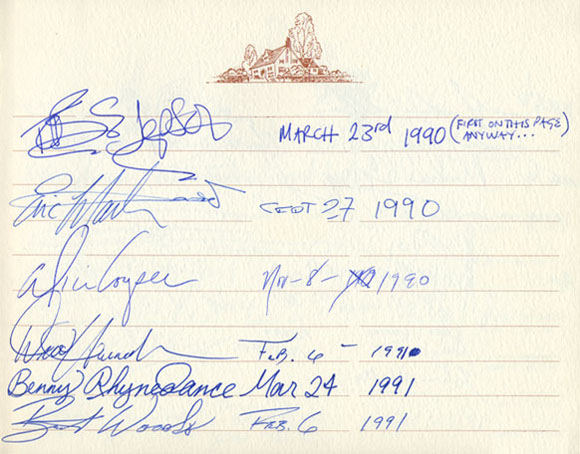 MARCH 23rd 1990 (FIRST ON THIS PAGE ANYWAY...
Eric Martin SEPT 27 1990
Nov-8- 1990
Feb. 6 - 1991
Benny Rhynedance Mar 24 1991
Bert Woods Feb. 6 1991